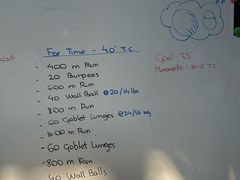 For Time - 40' T.C.
- 400 m Run
- 20 Burpees
- 600 m Run
- 40 Wall Ball @ 20/14 lbs
- 800 m Run
- 60 Goblet Lunges @ 24/16 kg
- 1000 m Run
- 60 Goblet Lunges
- 800 m Run
- 40 Wall Balls
Goal: 35